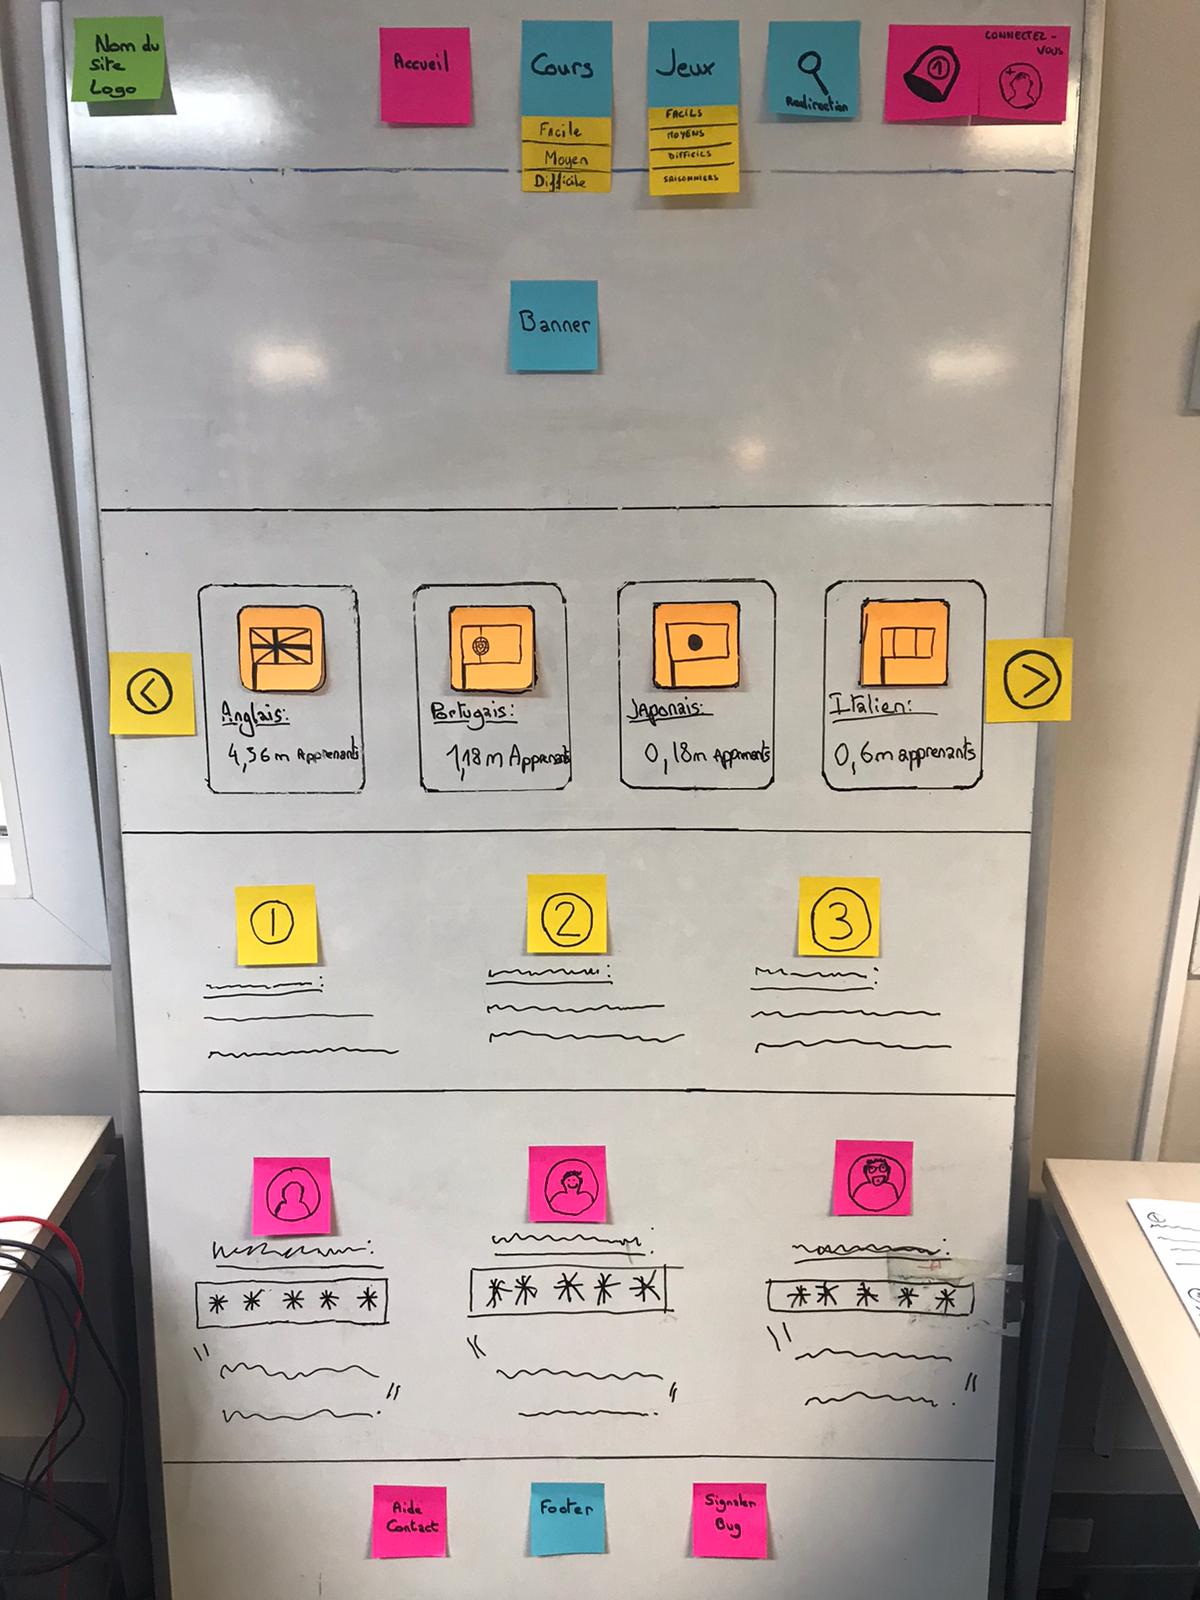 Nom du
site
Logo
Accueil
Cours
Facile
Moyen
Difficile
Jeux
FACILS
MOYENS
DIFFICILS
SAISONNIERS
Redirection
1
CONNECTEZ -
VOUS
Banner
<
Anglais:
4,56m Apprenants
Portugais:
1,18m Apprenants
Japonais:
0,18m Apprenants
Italien:
0,6m apprenants
>
1
2
3
* * * * *
* * * * *
* * * * *
Aide
Contact
Footer
Signaler
Bug